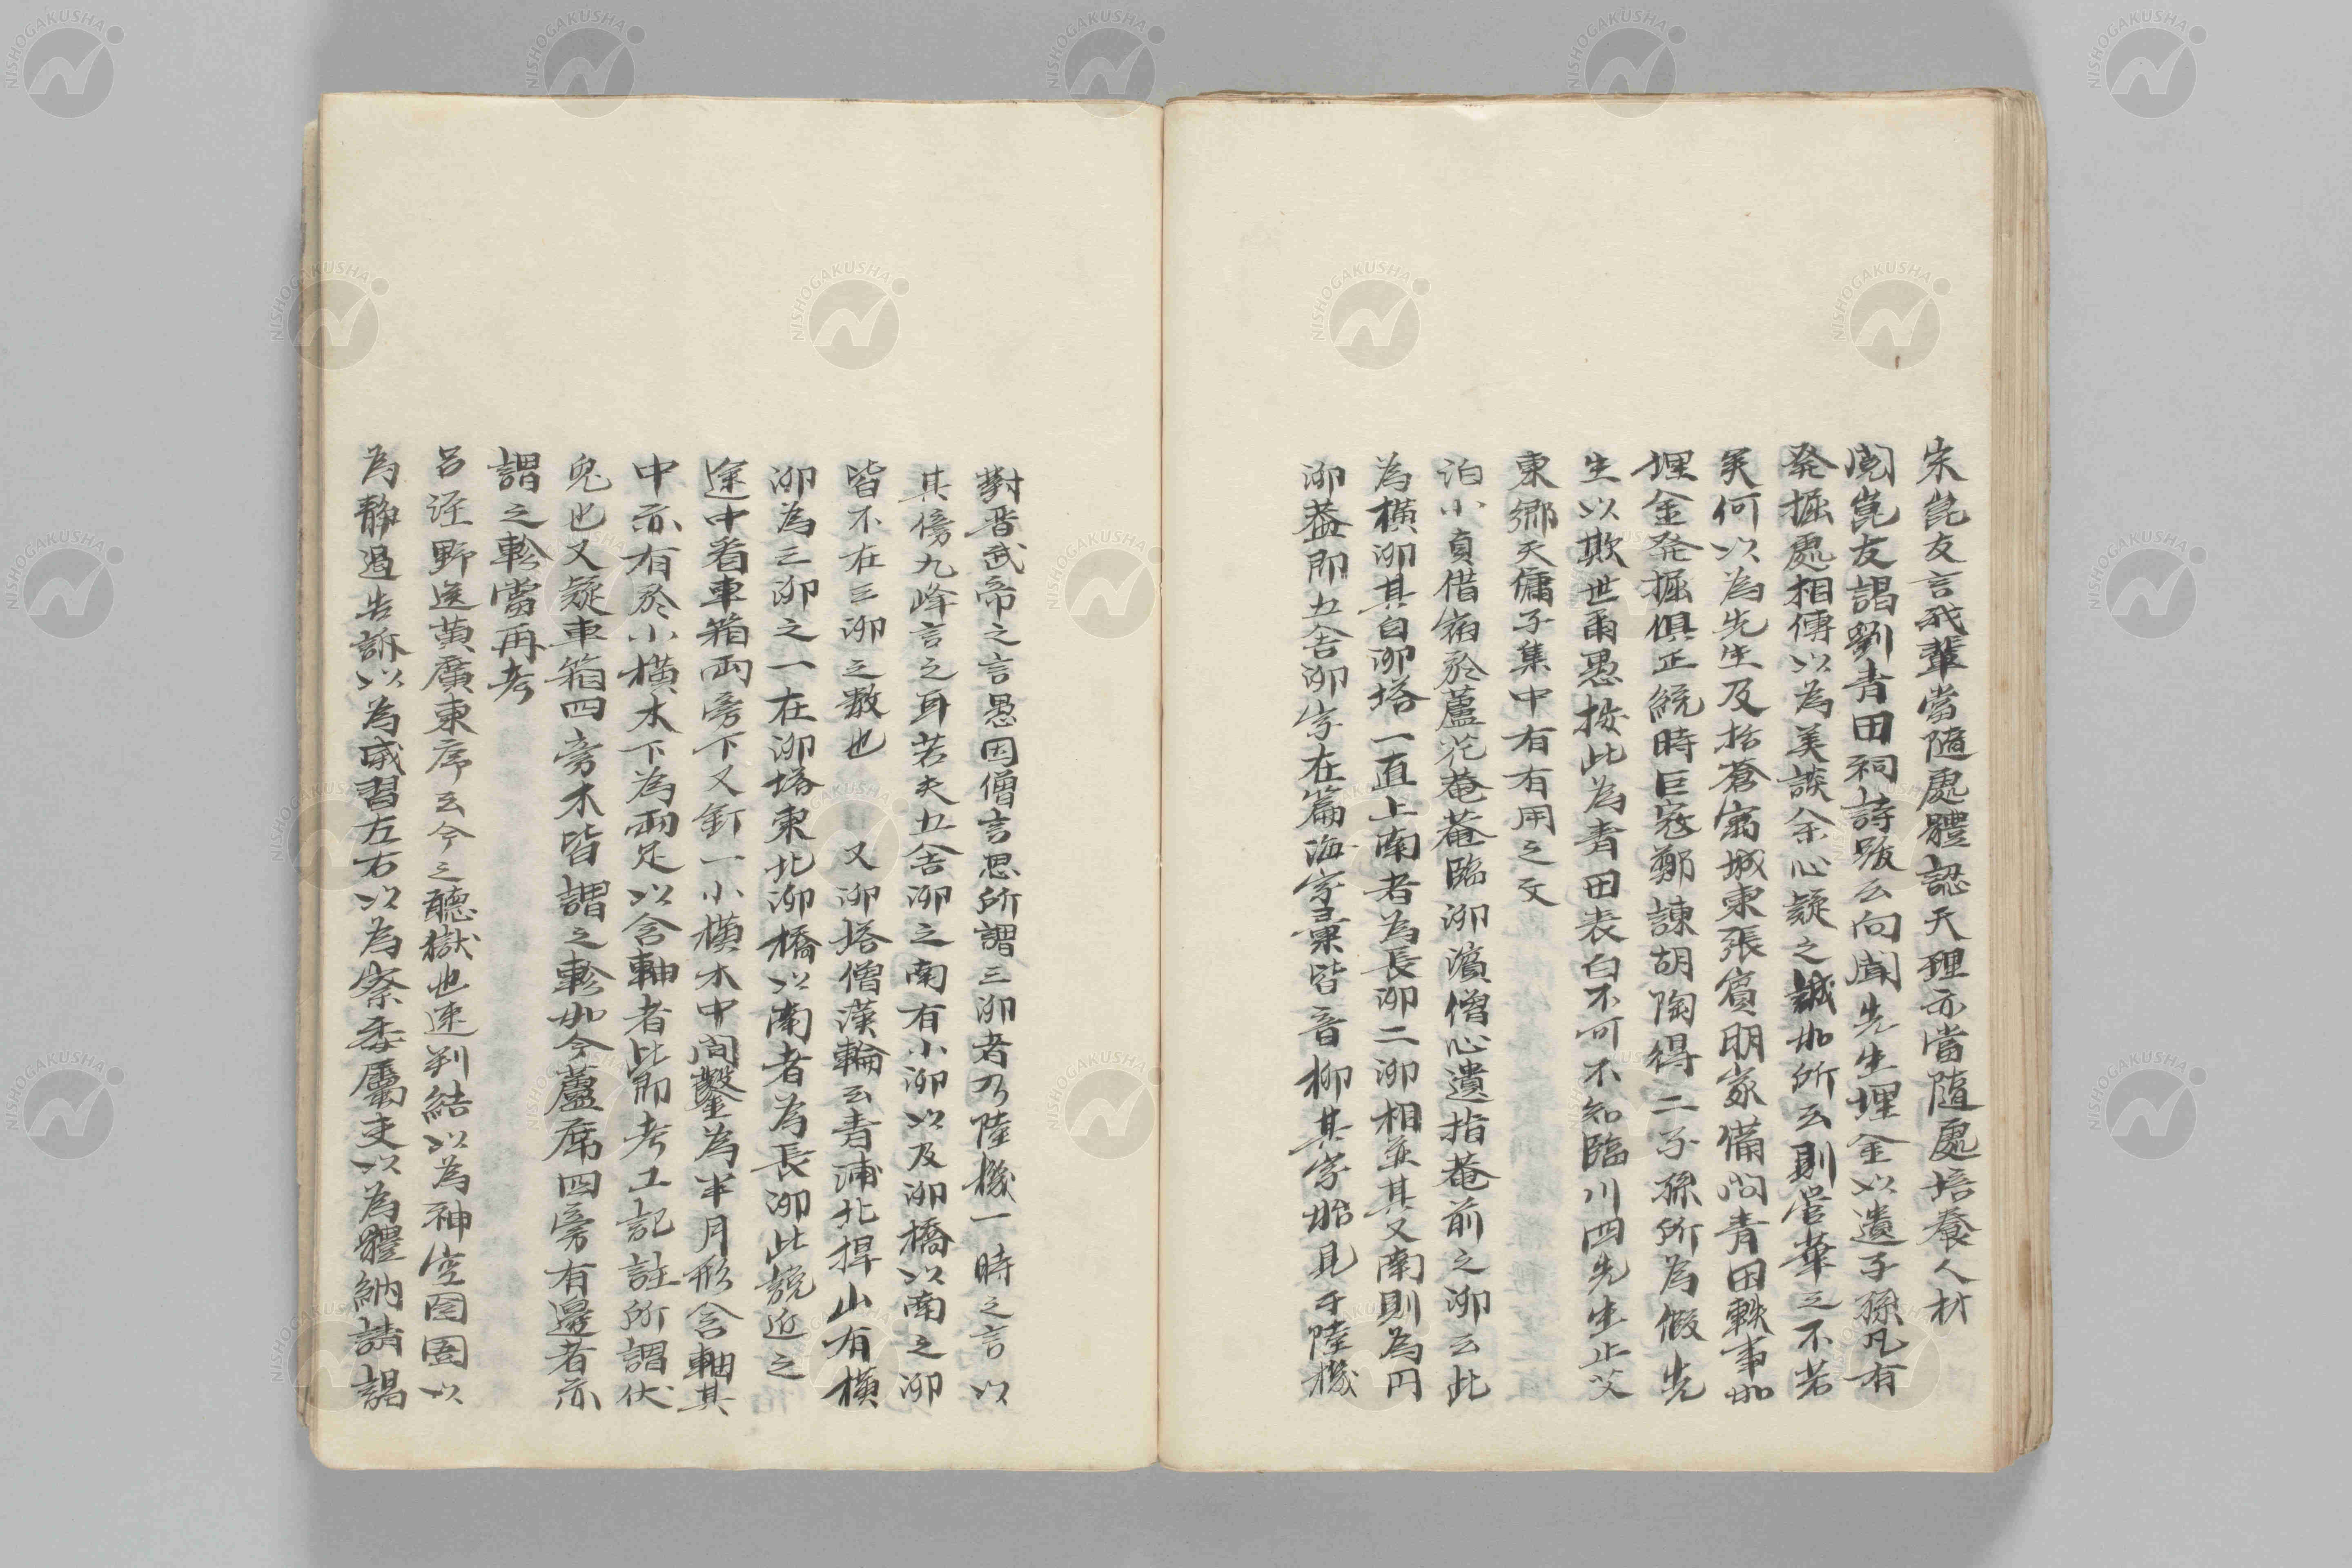 宋崑友言我輩當隨處體認天理亦當隨處培養人材
閱崑友謁劉青田祠詩跋云向聞先生埋金以遺子孫凡有
発掘處相傳以為美談余心疑之誠如所云則管華之不若
矣何以為先生及括蒼寓城東張賓朋家備問青田軼事如
埋金発掘俱正統時巨寇鄭諫胡陶得二子孫所為假先
生以欺世爾愚按此為青田表白不可不知臨川四先生止艾
東鄉天傭子集中有有用之文
泊小貞借宿於蘆花菴菴臨泖濱僧心遺指菴前之泖云此
為橫泖其自泖塔一直上南者為長泖二泖相並其又南則為円
泖葢即五舍泖字在篇海字彙皆音柳其字始見于陸機
對晋武帝之言愚因僧言思所謂三泖者乃陸機一時之言以
其傍九峰言之耳若夫五舍泖之南有小泖以及泖橋以南之泖
皆不在三泖之数也 又泖塔僧漢輪云青浦北捍山有橫
泖為三泖之一在泖塔東北泖橋以南者為長泖此說近之
途中看車箱両旁下又釘一小橫木中間鑿為半月形含軸其
中亦有於小橫木下為両足以含軸者比即考工記註所謂伏
兔也又疑車箱四旁木皆謂之軫如今蘆席四旁有邉者亦
謂之軫當再考
呂涇野送黃廣東序云今之聽獄也速判結以為神空囹圄以
為靜遏告訴以為威習左右以為察委屬吏以為體納請謁
NISHOGAKUSHA